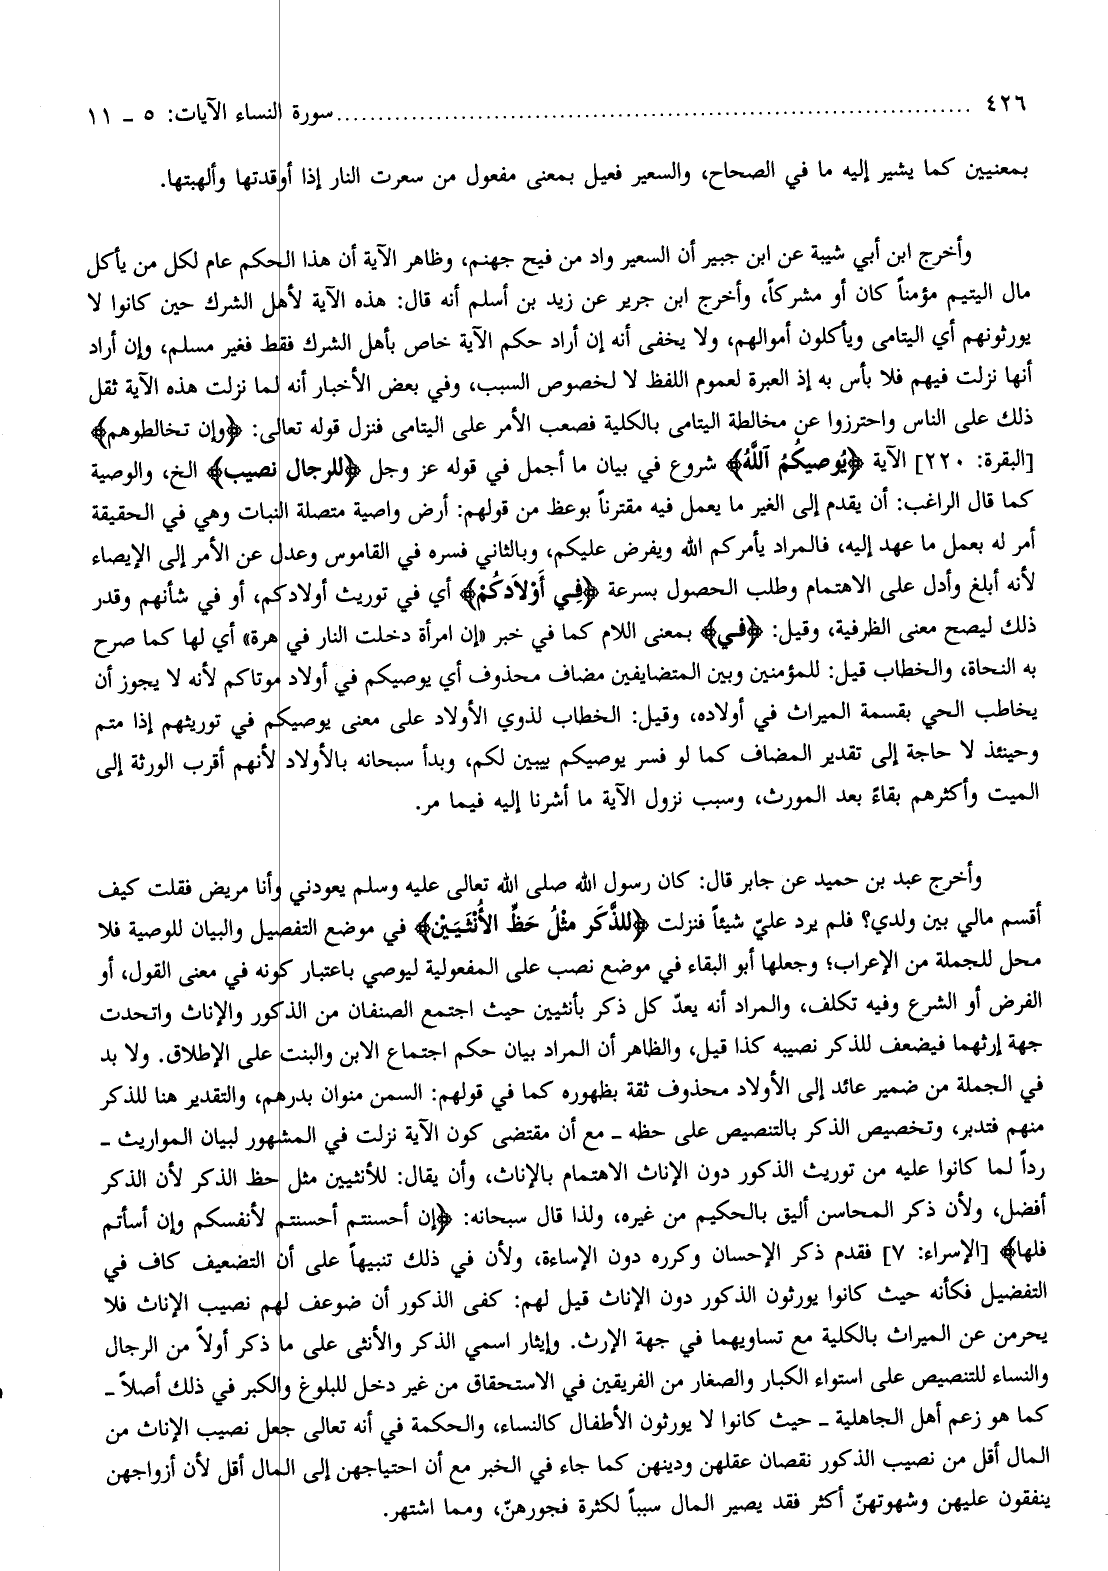 ٤٢٦ ........................................................................ سورة النساء الآيات: ٥ ـ ١١
بمعنيين كما يشير إليه ما في الصحاح، والسعير فعيل بمعنى مفعول من سعرت النار إذا أوقدتها وألهبتها.
وأخرج ابن أبي شيبة عن ابن جبير أن السعير واد من فيح جهنم، وظاهر الآية أن هذا الحكم عام لكل من يأكل
مال اليتيم مؤمناً كان أو مشركاً، وأخرج ابن جرير عن زيد بن أسلم أنه قال: هذه الآية لأهل الشرك حين كانوا لا
يورثونهم أي اليتامى ويأكلون أموالهم، ولا يخفى أنه إن أراد حكم الآية خاص بأهل الشرك فقط فغير مسلم، وإن أراد
أنها نزلت فيهم فلا بأس به إذ العبرة لعموم اللفظ لا لخصوص السبب، وفي بعض الأخبار أنه لما نزلت هذه الآية ثقل
ذلك على الناس واحترزوا عن مخالطة اليتامى بالكلية فصعب الأمر على اليتامى فنزل قوله تعالى: ﴿وإن تخالطوهم﴾
[البقرة: ٢٢٠] الآية ﴿يُوصِيكُمُ ٱللَّهُ﴾ شروع في بيان ما أجمل في قوله عز وجل ﴿للرجال نصيب﴾ الخ، والوصية
كما قال الراغب: أن يقدم إلى الغير ما يعمل فيه مقترناً بوعظ من قولهم: أرض واصية متصلة النبات وهي في الحقيقة
أمر له بعمل ما عهد إليه، فالمراد يأمركم الله ويفرض عليكم، وبالثاني فسره في القاموس وعدل عن الأمر إلى الإيصاء
لأنه أبلغ وأدل على الاهتمام وطلب الحصول بسرعة ﴿فِي أَوْلاَدِكُمْ﴾ أي في توريث أولادكم، أو في شأنهم وقدر
ذلك ليصح معنى الظرفية، وقيل: ﴿في﴾ بمعنى اللام كما في خبر «إن امرأة دخلت النار في هرة» أي لها كما صرح
به النحاة، والخطاب قيل: للمؤمنين وبين المتضايفين مضاف محذوف أي يوصيكم في أولاد موتاكم لأنه لا يجوز أن
يخاطب الحي بقسمة الميراث في أولاده، وقيل: الخطاب لذوي الأولاد على معنى يوصيكم في توريثهم إذا متم
وحينئذ لا حاجة إلى تقدير المضاف كما لو فسر يوصيكم بيبين لكم، وبدأ سبحانه بالأولاد لأنهم أقرب الورثة إلى
الميت وأكثرهم بقاءً بعد المورث، وسبب نزول الآية ما أشرنا إليه فيما مر.
وأخرج عبد بن حميد عن جابر قال: كان رسول الله صلى الله تعالى عليه وسلم يعودني وأنا مريض فقلت كيف
أقسم مالي بين ولدي؟ فلم يرد عليّ شيئاً فنزلت ﴿للذَّكَرِ مثْلُ حَظِّ الأُنْثَيَيْنِ﴾ في موضع التفصيل والبيان للوصية فلا
محل للجملة من الإعراب؛ وجعلها أبو البقاء في موضع نصب على المفعولية ليوصي باعتبار كونه في معنى القول، أو
الفرض أو الشرع وفيه تكلف، والمراد أنه يعدّ كل ذكر بأنثيين حيث اجتمع الصنفان من الذكور والإناث واتحدت
جهة إرثهما فيضعف للذكر نصيبه كذا قيل، والظاهر أن المراد بيان حكم اجتماع الابن والبنت على الإطلاق. ولا بد
في الجملة من ضمير عائد إلى الأولاد محذوف ثقة بظهوره كما في قولهم: السمن منوان بدرهم، والتقدير هنا للذكر
منهم فتدبر، وتخصيص الذكر بالتنصيص على حظه ـ مع أن مقتضى كون الآية نزلت في المشهور لبيان المواريث ـ
رداً لما كانوا عليه من توريث الذكور دون الإناث الاهتمام بالإناث، وأن يقال: للأنثيين مثل حظ الذكر لأن الذكر
أفضل، ولأن ذكر المحاسن أليق بالحكيم من غيره، ولذا قال سبحانه: ﴿إن أحسنتم أحسنتم لأنفسكم وإن أسأتم
فلها﴾ [الإسراء: ٧] فقدم ذكر الإحسان وكرره دون الإساءة، ولأن في ذلك تنبيهاً على أن التضعيف كاف في
التفضيل فكأنه حيث كانوا يورثون الذكور دون الإناث قيل لهم: كفى الذكور أن ضوعف لهم نصيب الإناث فلا
يحرمن عن الميراث بالكلية مع تساويهما في جهة الإرث. وإيثار اسمي الذكر والأنثى على ما ذكر أولاً من الرجال
والنساء للتنصيص على استواء الكبار والصغار من الفريقين في الاستحقاق من غير دخل للبلوغ والكبر في ذلك أصلاً ـ
كما هو زعم أهل الجاهلية ـ حيث كانوا لا يورثون الأطفال كالنساء، والحكمة في أنه تعالى جعل نصيب الإناث من
المال أقل من نصيب الذكور نقصان عقلهن ودينهن كما جاء في الخبر مع أن احتياجهن إلى المال أقل لأن أزواجهن
ينفقون عليهن وشهوتهنّ أكثر فقد يصير المال سبباً لكثرة فجورهنّ، ومما اشتهر.